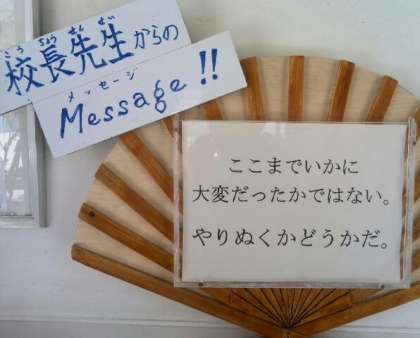 こうちょうせんせい
校長先生からの
メッセージ
Message!!
ここまでいかに
大変だったかではない。
やりぬくかどうかだ。